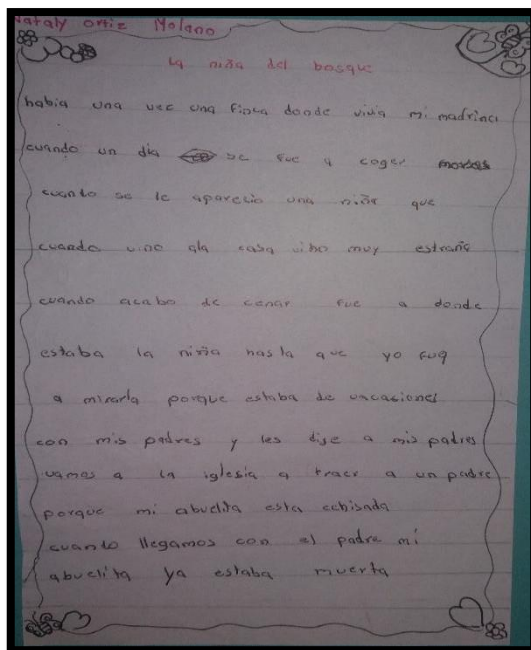 Nataly ortiz Molano
la niña del bosque
habia una vez una finca donde vivia mi madrina
cuando un dia se fue a coger moras
cuando se le aparecio una niña que
cuando vino ala casa vino muy estraña
cuando acabo de cenar fue a donde
estaba la niña hasta que yo fuy
a mirarla porque estaba de vacasiones
con mis padres y les dije a mis padres
vamos a la iglesia a traer a un padre
porque mi abuelita esta echisada
cuando llegamos con el padre mi
abuelita ya estaba muerta